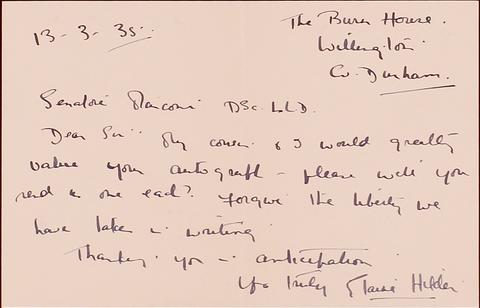 13-3-35.
The Burn House.
Willington
Co. Durham.
Senatore Marconi DSc. LLD.
Dear Sir: My cousin & I would greatly
value your autograph - please will you
send us one each? Forgive the liberty we
have taken in writing
Thanking you in anticipation
Yrs truly Elaine Hilder